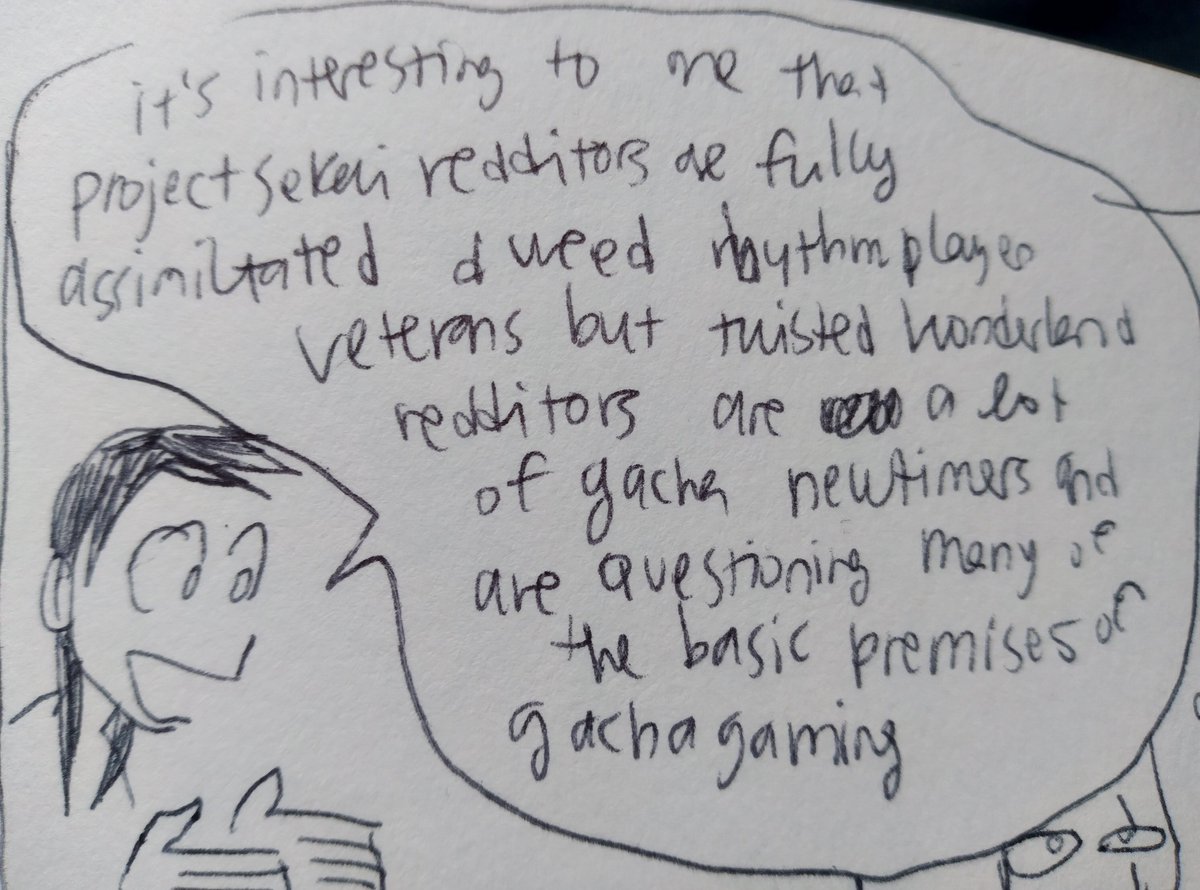 it's interesting to me that
project sekai redditors are fully
assimiltated d weed rhythm player
veterans but twisted wonderland
redditors are a lot
of gacha newtimers and
are questioning many of
the basic premises of
gacha gaming